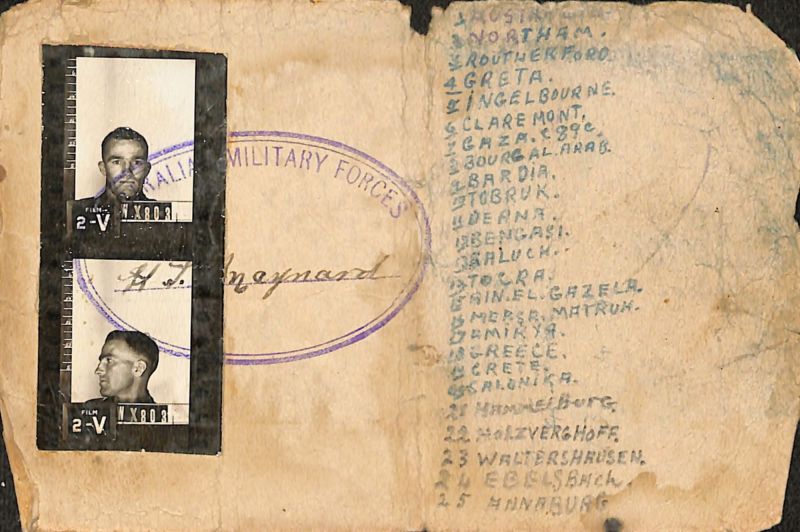 AUSTRALIAN MILITARY FORCES
H T Maynard
FILM
2-V
WX808
FILM
2-V
WX808
1 AUSTRALIA.
2 NORTHAM.
3 ROUTHERFORD
4 GRETA.
5 INGELBOURNE.
6 CLAREMONT.
7 GAZA. C89C.
8 BOURGAL.ARAB.
9 BARDIA.
10 TOBRUK.
11 DERNA.
12 BENGASI.
13 BALUCH.
14 TOCRA.
15 AIN.EL.GAZELA.
16 MERSA.MATRUH.
17 EMIRYA.
18 GREECE.
19 CRETE.
20 SALONIKA.
21 HAMMELBURG.
22 HOLZVERGHOFF.
23 WALTERSHAUSEN.
24 EBELSBACH.
25 ANNABURG